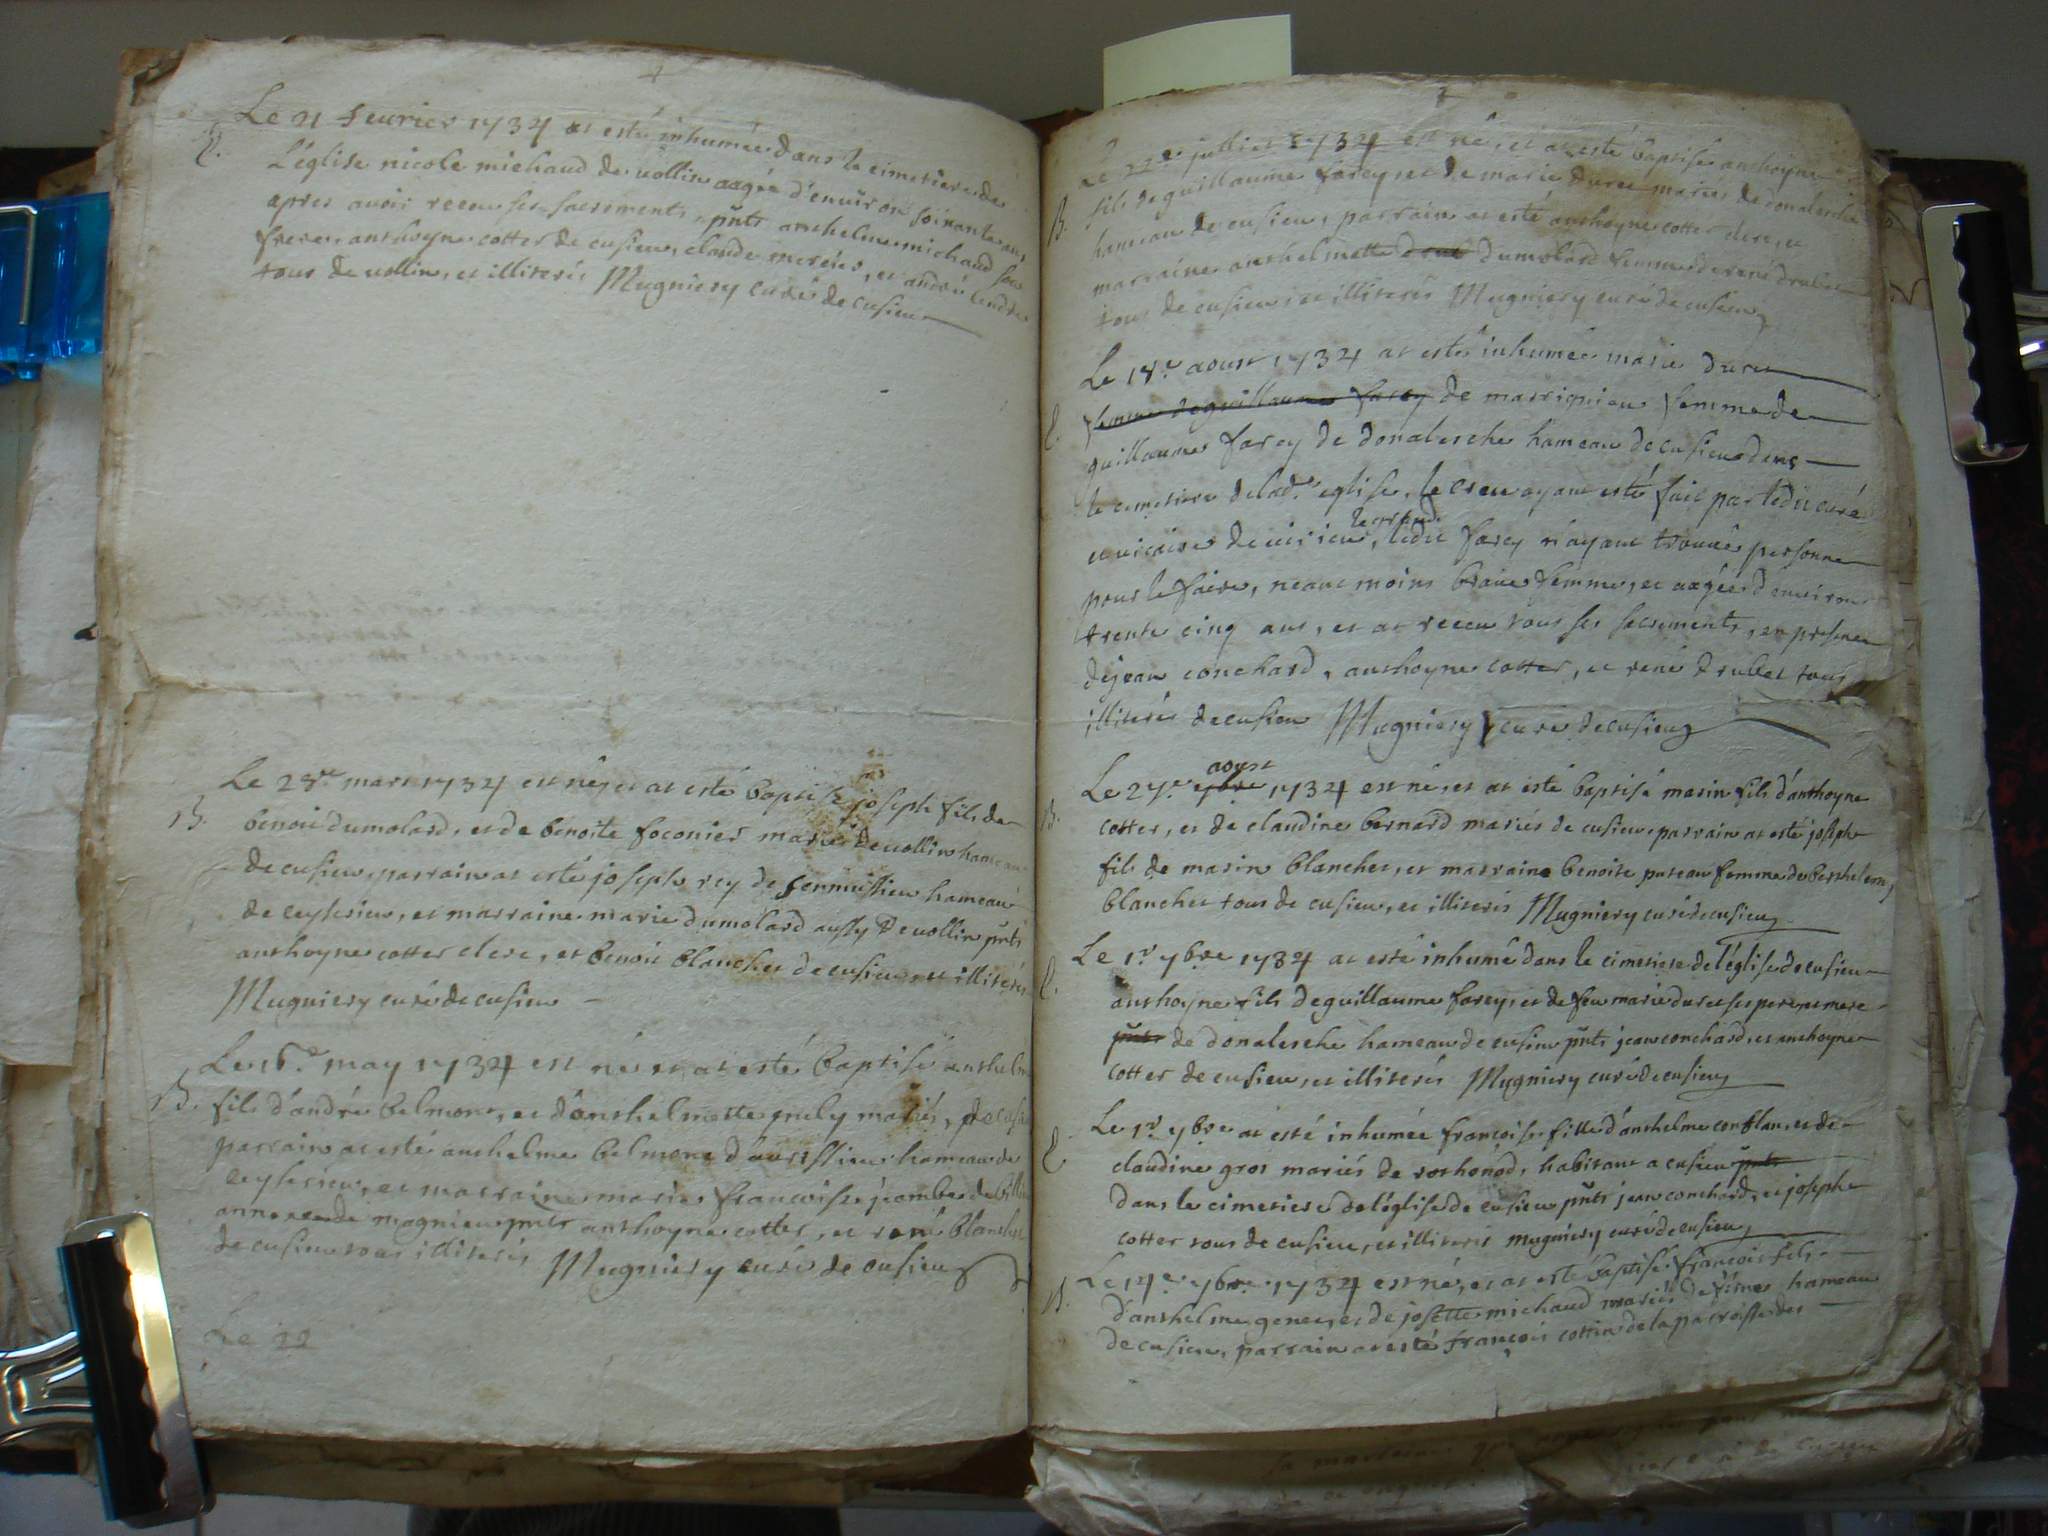 Le 21 feurier 1734 at esté inhumée dans le cimetiere de
E. L'églize nicole michaud de vollin aagée d'enuiron soixante ans
apres auoir receu ses sacrements, pnts anthelme michaud son
frere, anthoyne cotter de cusieu, claude mercier, et andré
tous de vollin, et illiterés Mugniery curé de cusieu
Le 28e mars 1734 est né, et at esté baptisé joseph fils de
B. benoit dumolard, et de benoite foconier mariés de vollin hameau
de cusieu, parrain at esté joseph rey de hameau
de ceyserieu, et marraine marie dumolard aussy de vollin pnts
anthoyne cotter clerc, et benoit blanchet de cusieu, et illiterés
Mugniery curé de cusieu
Le 16e may 1734 est né et at esté baptisé anthelme
B. fils d'andré belmont, et d'anthelmette mariés, de
parrain at esté anthelme belmont hameau de
ceyserieu, et marraine marie francoise
magnieu pnts anthoyne cotter, et rené blanchet
de cusieu tous illiterés Mugniery curé de cusieu
Le 22
Le 22e julliet 1734 est né, et at esté baptisé anthoyne
B. fils de guillaume farey, et de marie duret mariés de donalesche
hameau de cusieu, parrain at esté anthoyne cotter clerc, et
marraine anthelmette dumolard femme de rené drubet
tous de cusieu et illiterés Mugniery curé de cusieu
Le 18e aoust 1734 at esté inhumée marie duret
E. femme de guillaume farey de marrignieu femme de
guillaume farey de donalesche hameau de cusieu dans
le cemetiere de lad.e eglise, le creu ayant esté fait par ledit curé
et vicaire de virieu, ledit farey n'ayant trouués personne
pour le faire, neant moins braue femme, et aagée d'enuiron
trente cinq ans, et at receu tous ses sacrements, en presence
de jean conchard, anthoyne cotter, et rené drubet tous
illiterés de cusieu Mugniery curé de cusieu
aoust
B. Le 27e 7bre 1734 est né, et at esté baptisé marin fils d'anthoyne
cotter, et de claudine bernard mariés de cusieu, parrain at esté joseph
fils de marin blanchet, et marraine benoite puteau femme de berthelemy
blanchet tous de cusieu, et illiterés Mugniery curé de cusieu
Le 1r 7bre 1734 at esté inhumé dans le cimetiere de l'église de cusieu
E. anthoyne fils de guillaume farey, et de feu marie duret ses pere, et mere
pnts de donalesche hameau de cusieu pnts jean conchard, et anthoyne
cotter de cusieu, et illiterés Mugniery curé de cusieu
Le 1r 7bre at esté inhumée francoise fille d'anthelme conflan, et de
E. claudine gros mariés de rothonod, habitant a cusieu pnts
dans le cimetiere de l'église de cusieu pnts jean conchard, et joseph
cotter tous de cusieu, et illiterés mugniery curé de cusieu
B. Le 14e 7bre 1734 est né, et at esté baptisé francois fils
d'anthelme genet, et de josette michaud mariés de hameau
de cusieu, parrain at esté francois cottin de la parroisse des